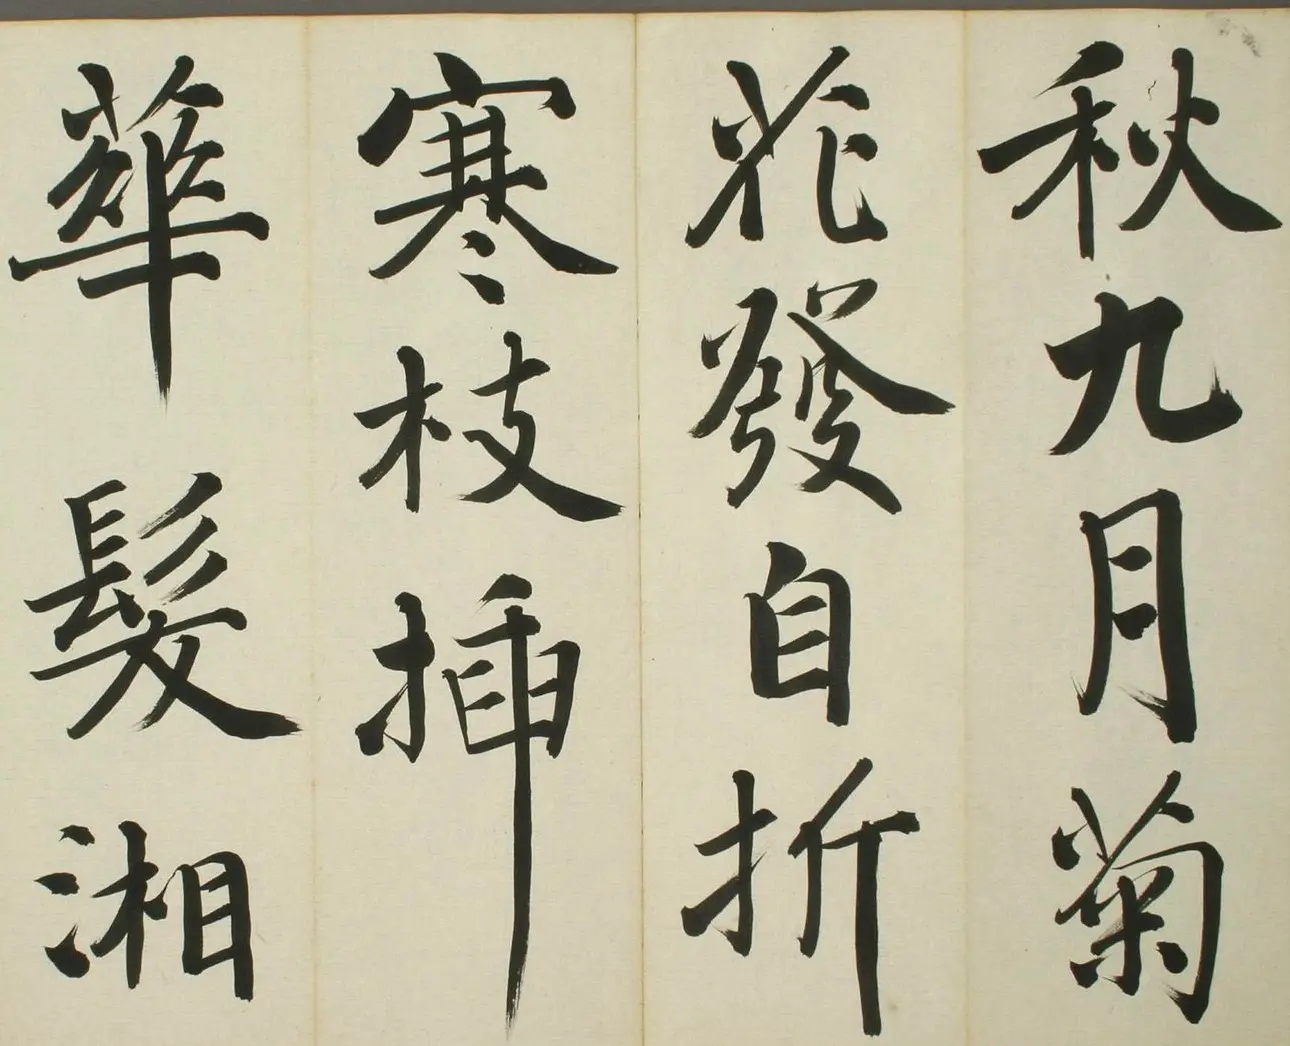 秋九月菊
花發自折
寒枝插
華髮湘